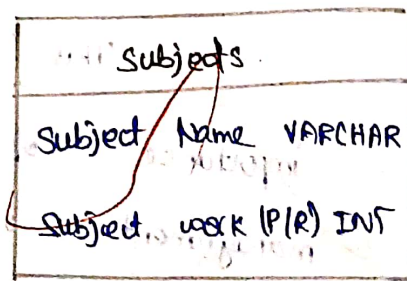 Subjects
Subject Name VARCHAR
Subject work (P/R) INT